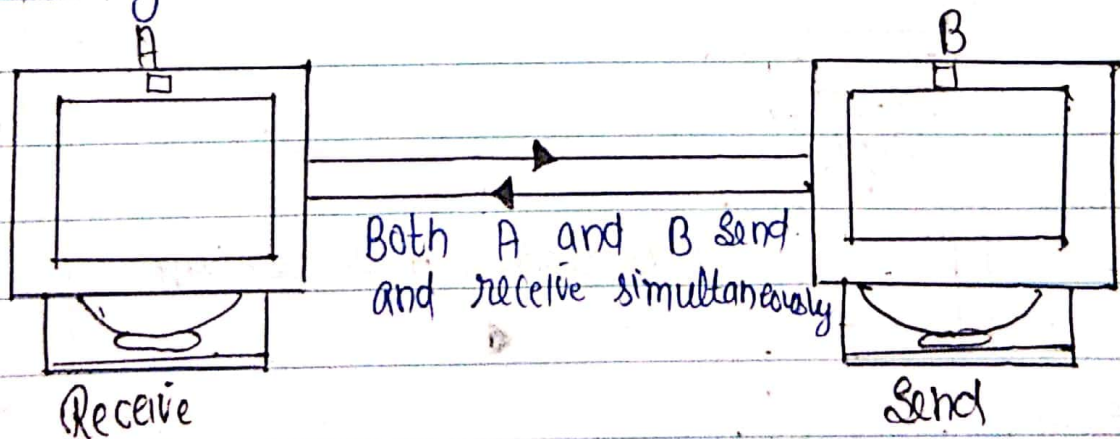 A
B
Both A and B Send
and receive simultaneously
Receive
Send